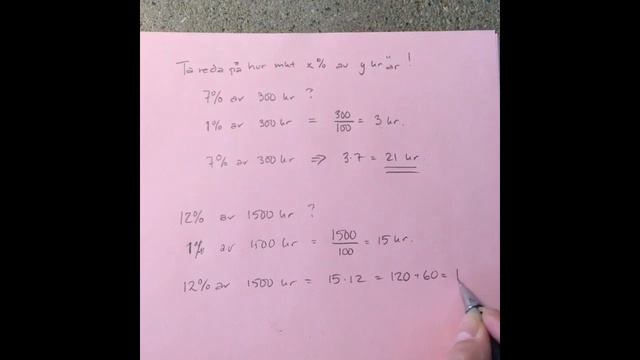 Ta reda på hur mkt x% av y kr är!
7% av 300 kr ?
1% av 300 kr = 300/100 = 3 kr.
7% av 300 kr ⇒ 3·7 = 21 kr.
12% av 1500 kr ?
1% av 1500 kr = 1500/100 = 15 kr.
12% av 1500 kr = 15·12 = 120+60 = 1